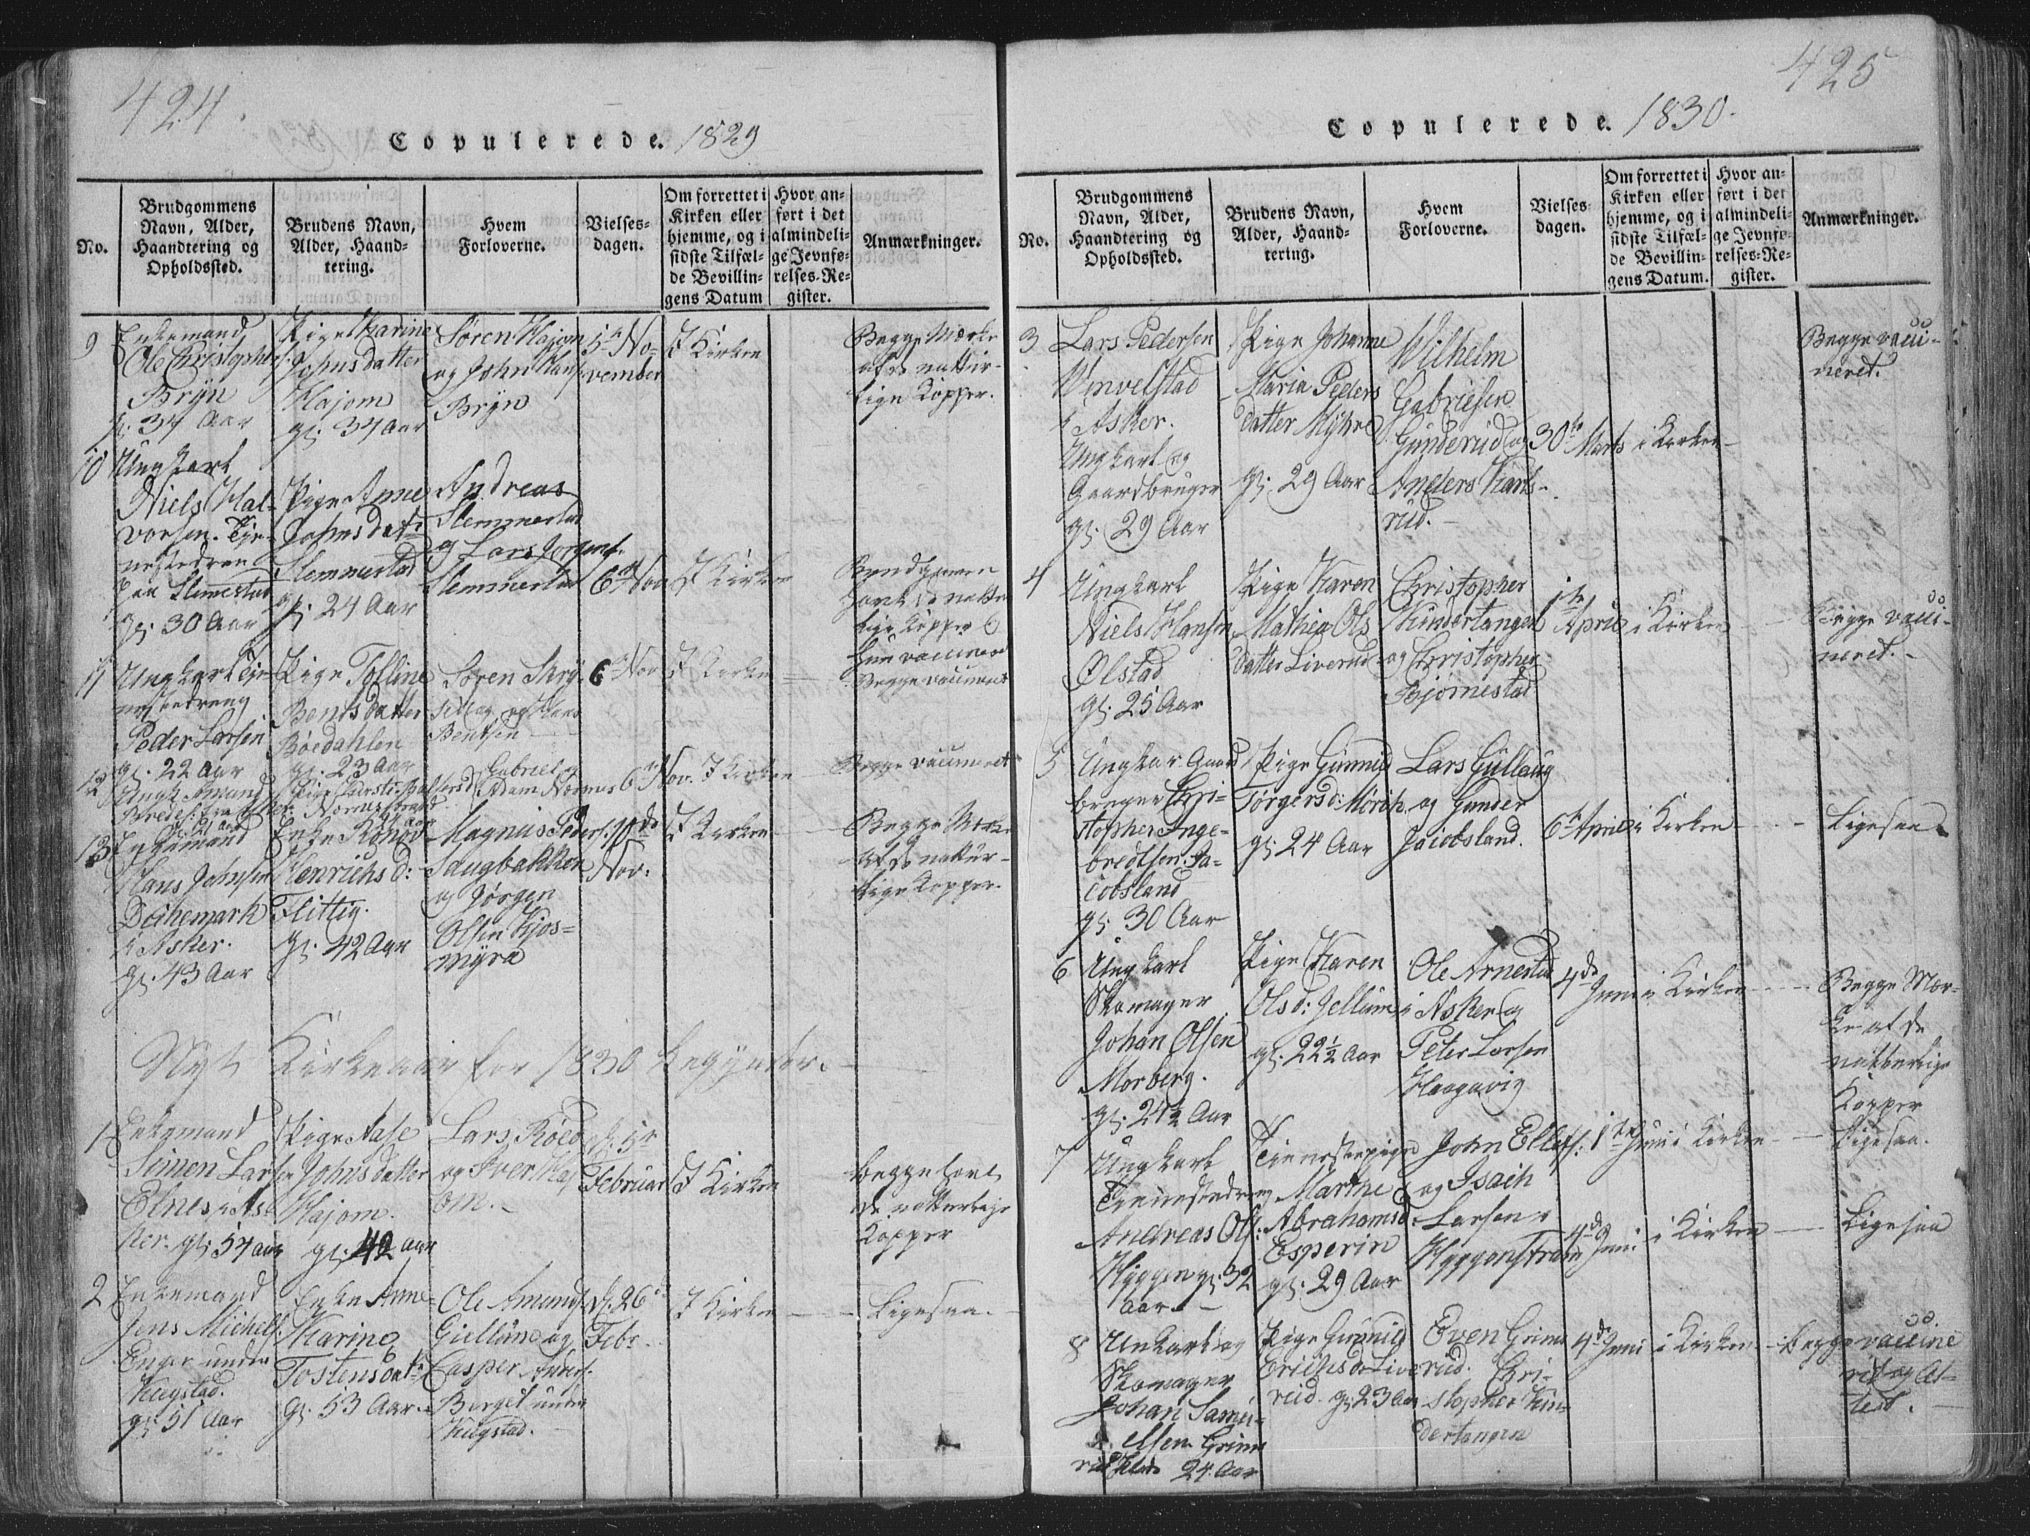 424.
Copulerede. 1829
No.
Brudgommens
Navn, Alder,
Haandtering og
Opholdssted.
Brudens Navn,
Alder, Haand-
tering.
Hvem
Forloverne.
Vielses-
dagen.
Om forrettet i
Kirken eller
hjemme, og i
sidste Tilfæl-
de Bevillin-
gens Datum
Hvor an-
ført i det
almindeli-
ge Jevnfø-
relses-Re-
gister.
Anmærkninger.
9
Enkemand
Ole Christophers.
Bryn
gl. 37 Aar
Pige Karine
Johnsdatter
Hajom
gl. 37 Aar
Søren Hajom
og John Hans.
Bryn
5te No-
vember
I Kirken
Begge Mærke
af de nattur-
lige Kopper.
10
Ungkarl
Niels Hal-
vorsen. Tje-
nestedreng
paa Slemmestad
gl. 30 Aar
Pige Anne
Johnsdatr
Slemmestad
gl. 24 Aar
Andreas
Slemmestad
og Lars Jørgens.
Slemmestad
6te Nov
I Kirken
Brudgommen
havt de natte
lige Kopper
hun vaccineret
11
Ungkarl Tje-
nestedreng
Peder Larsen
gl. 22 Aar
Pige Tolline
Bentsdatter
Bøedahlen
gl. 23 Aar
Søren Skrø-
Bentsen
6te Nov
I Kirken
Begge vaccineret
12
Ungk. Amund
gl. 21 Aar
Gabriel og
Adam Nærnes
6te Nov.
I Kirken
Begge vaccineret
13
Enkemand
Hans Johnsen
Døhemark
i Asker.
gl. 43 Aar
Enke Ronov
Henrichsd:
Flittig.
gl. 42 Aar
Magnus Peders.
Saugbakken
og Jørgen
Olsen Kjos-
myra
10de
Nov.
I Kirken
Begge Mærke
af de nattur-
lige Kopper.
Nyt Kirkeaar for 1830 begynder.
1
Enkemand
Simen Lars.
Elnes i As-
ker. gl. 57 aar
Pige Aase
Johnsdatter
Hajom.
gl. 42 aar
Lars Røed
og Iver Haj
om.
d. 5te
Februar
I Kirken
begge havt
de natturlige
Kopper
2
Enkemand
Jens Michels.
Enger under
Kiegstad.
gl. 51 Aar
Enke Anne
Karine
Tostensdatr
gl. 53 Aar
Ole Amunds.
Giellum og
Casper Anders.
Berget under
Kiegstad.
d. 26
Febr.
I Kirken
Ligesaa.
425
Copulerede. 1830.
No.
Brudgommens
Navn, Alder,
Haandtering og
Opholdssted.
Brudens Navn,
Alder, Haand-
tering.
Hvem
Forloverne.
Vielses
dagen.
Om forrettet i
Kirken eller
hjemme, og i
sidste Tilfæl-
de Bevillin-
gens Datum.
Hvor an-
ført i det
almindeli-
ge Jevnfø-
relses-Re-
gister.
Anmærkninger.
3
Lars Pedersen
Venvelstad
i Asker.
Ungkarl og
Gaardbruger
gl. 29 Aar
Pige Johanne
Maria Peders
datter Myhre
gl. 29 Aar
Wilhelm
Gabrielsen
Gunderud og
Anders Karls-
rud.
30te Marts
i Kirken
Begge vacci-
neret.
4
Ungkarl
Niels Hansen
Ølstad
gl. 25 Aar
Pige Karen
Mathea Ols
datter Liverud
Christopher
Kindertangen
og Christopher
Bjørnestad
1te
April
i Kirken
Begge vacci-
neret.
5
Ungkar. Gaard
bruger Chri-
stopher Inge-
bredtsen Ja-
cobsland
gl. 30 Aar
Pige Gunnild
Torgersd: Mørch.
gl. 24 Aar
Lars Gullaug
og Gunder
Jacobsland.
6te April
i Kirken
Ligesaa
6
Ungkarl
Skomager
Johan Olsen
Morberg.
gl. 24½ Aar
Pige Karen
Olsd: Jellum
gl. 22½ Aar
Ole Arnestad
i Asker og
Peter Larsen
Haagavig
4de
Juni
i Kirken
Begge Mær-
ke af de
natturlige
Kopper
7
Ungkarl
Tjenestedreng
Andreas Ols.
Hyggen gl. 32
Aar.
Tienestepige
Marthe
Abrahamsd.
Esperin
gl. 29 Aar
John Ellefs:
og Isach
Larsen
Hyggenstranden
1te Juni
i Kirken
Ligesaa.
4de
Juni
i Kirken
Ligesaa
8
Unkarl og
Skomager
Johan Samu-
elsen Grim
24. Aar
Pige Gunnild
Erichsd. Live
rud. gl. 23 Aar
Even Grims
rud. Chri-
stopher Kin-
dertangen
4de
Juni
i Kirken
begge vaccine
ret og At-
test.